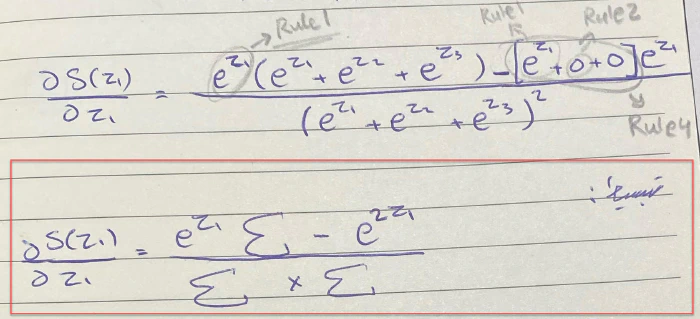 → Rule1 Rule1 Rule2
∂S(z₁)/∂z₁ = e^{z₁}(e^{z₁} + e^{z₂} + e^{z₃}) - [e^{z₁} + 0 + 0]e^{z₁} / (e^{z₁} + e^{z₂} + e^{z₃})²
Rule4
∂S(z₁)/∂z₁ = e^{z₁} Σ - e^{2z₁} / Σ × Σ